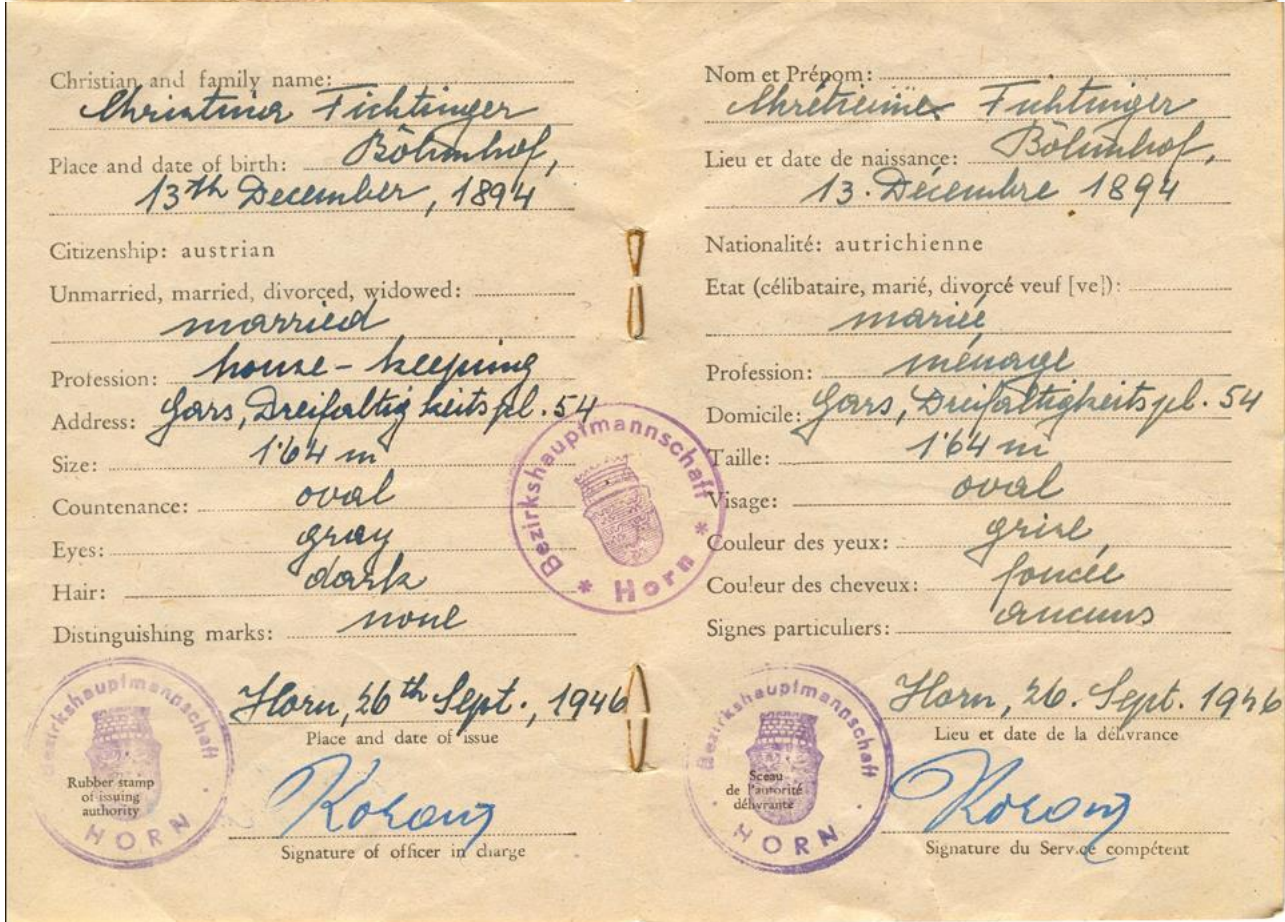 Christian and family name:
Christina Fichtinger
Place and date of birth: Böhmhof,
13th December, 1894
Citizenship: austrian
Unmarried, married, divorced, widowed:
married
Profession: house-keeping
Address: Gars, Dreifaltigkeitspl. 54
Size: 1'64 m
Countenance: oval
Eyes: gray
Hair: dark
Distinguishing marks: none
Bezirkshauptmannschaft
HORN
Rubber stamp
of issuing
authority
Horn, 26th Sept., 1946
Place and date of issue
Signature of officer in charge
* Bezirkshauptmannschaft *
Horn
Nom et Prénom:
Chrétienne Fichtinger
Lieu et date de naissance: Böhmhof,
13. Décembre 1894
Nationalité: autrichienne
Etat (célibataire, marié, divorcé veuf [ve]):
mariée
Profession: ménage
Domicile: Gars, Dreifaltigkeitspl. 54
Taille: 1'64 m
Visage: oval
Couleur des yeux: grise
Couleur des cheveux: foncée
Signes particuliers: aucuns
Bezirkshauptmannschaft
HORN
Sceau
de l'autorité
délivrante
Horn, 26. Sept. 1946
Lieu et date de la délivrance
Signature du Service compétent